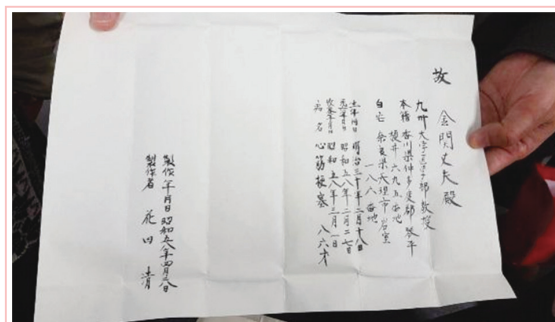 故 金関丈夫殿
九州大学医学部教授
本籍 香川県仲多度郡琴平
六九五番地
自宅 奈良県天理市岩室
一八八番地
生年月日 明治三十年二月十八日
死亡年月日 昭和五八年二月二七日
昭和五八年三月一日
病名 心筋梗塞 八六才
製作年月日 昭和五八年四月八日
製作者 花田 清